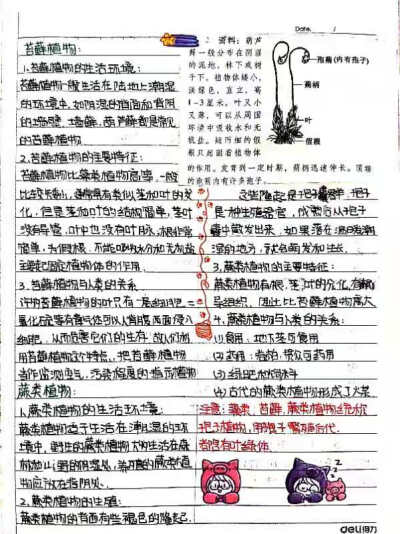 Date.
苔藓植物:
1.苔藓植物的生活环境:
苔藓植物一般生活在陆地上潮湿
的环境中,如阴湿的墙面和背阴
的墙壁,墙藓、葫芦藓都是常见
的苔藓植物
2.苔藓植物的主要特征:
苔藓植物比藻类植物高等,一般
比较矮小,通常具有类似茎和叶的分
化,但是茎和叶的结构简单,茎叶
没有导管,叶中也没有叶脉,根非常
简单,为假根,不能吸收水分和无机盐
主要起固定植物体的作用
3.苔藓植物与人类的关系
许多苔藓植物的叶只有一层细胞,二
氧化硫等有毒气体可以从背腹两面侵入
细胞,从而危害它们的生存,故人们利
用苔藓植物这个特点,把苔藓植物
当作监测空气污染程度的指示植物
蕨类植物:
1.蕨类植物的生活环境:
蕨类植物适于生活在潮湿的环
境中,野生的蕨类植物大都生活在森
林和山野的阴湿处,
物应放在背阴处。
2.蕨类植物的生殖:
蕨类植物的背面有些褐色的隆起,
资料:葫芦
藓一般分布在阴湿
的泥地、林下或树
干下。植物体矮小,
淡绿色,直立,高
1~3厘米。叶又小
又薄,可以从周围
环境中吸收水和无
机盐。短而细的假
根只起固着植物体
的作用。发育到一定时期,葫柄迅速伸长。顶端
的孢蒴内有许多孢子。
孢蒴(内有孢子)
蒴柄
叶
假根
这些隆起是孢子囊群,孢子
是一种生殖器官,成熟后从孢子
囊中散发出来,如果落在温暖潮
湿的地方,就会萌发和生长
3.蕨类植物的主要特征:
蕨类植物有根、茎、叶的分化,有
导组织,因此比苔藓植物高大
4.蕨类植物与人类的关系:
(1)食用:
(2)药用:卷柏、贯众可药用
(3)绿肥和饲料
(4)古代的蕨类植物形成了煤炭
注意:藻类、苔藓、蕨类植物统称
孢子植物,用孢子繁殖后代.
都含有叶绿体
deli得力